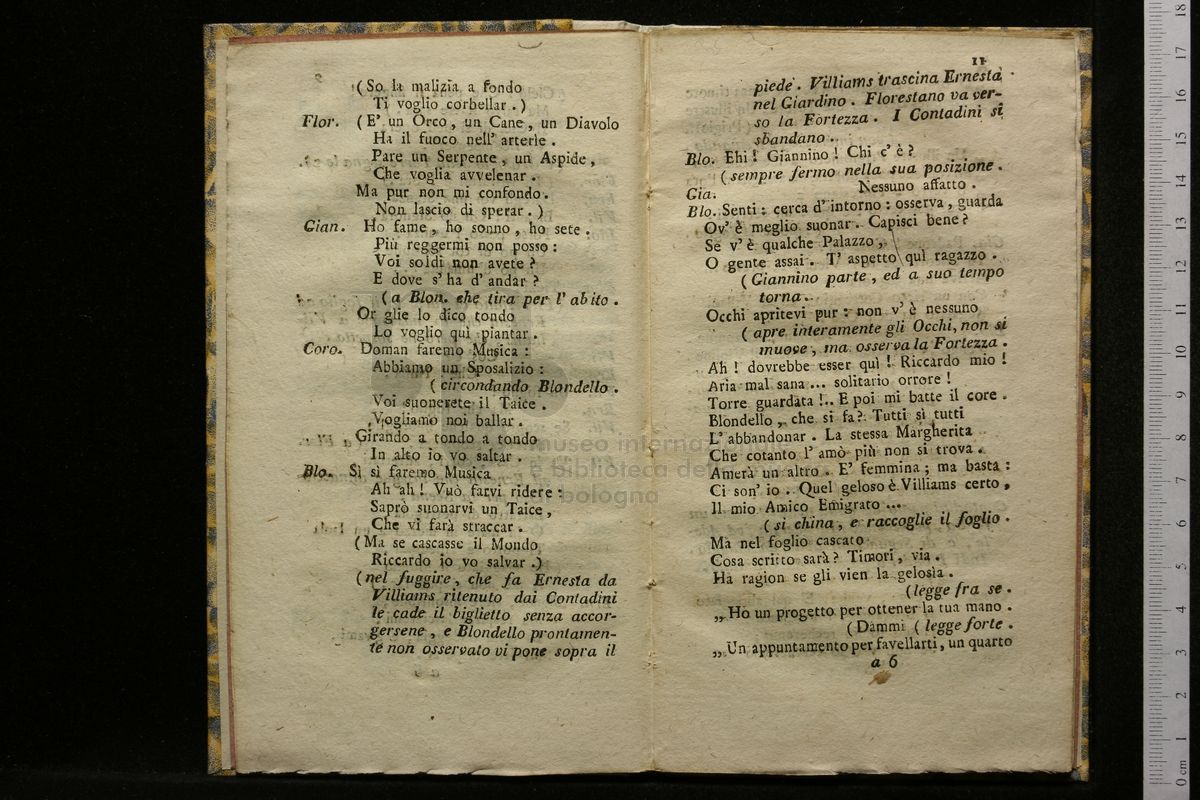 (So la malizia a fondo
Ti voglio corbellar.)
Flor. (E' un Orco, un Cane, un Diavolo
Ha il fuoco nell' arterie.
Pare un Serpente, un Aspide,
Che voglia avvelenar.
Ma pur non mi confondo.
Non lascio di sperar.)
Gian. Ho fame, ho sonno, ho sete.
Più reggermi non posso:
Voi soldi non avete?
E dove s' ha d' andar?
(a Blon. che tira per l' abito.
Or glie lo dico tondo
Lo voglio quì piantar.
Coro. Doman faremo Musica:
Abbiamo un Sposalizio:
(circondando Blondello.
Voi suonerete il Taice.
Vogliamo noi ballar.
Girando a tondo a tondo
In alto io vo saltar.
Blo. Sì sì faremo Musica
Ah ah! Vuò farvi ridere:
Saprò suonarvi un Taice,
Che vi farà straccar.
(Ma se cascasse il Mondo
Riccardo io vo salvar.)
(nel fuggire, che fa Ernesta da
Villiams ritenuto dai Contadini
le cade il biglietto senza accor-
gersene, e Blondello prontamen-
te non osservato vi pone sopra il
11
piede. Villiams trascina Ernesta
nel Giardino. Florestano va ver-
so la Fortezza. I Contadini si
sbandano.
Blo. Ehi! Giannino! Chi c' è?
(sempre fermo nella sua posizione.
Gia. Nessuno affatto.
Blo. Senti: cerca d' intorno: osserva, guarda
Ov' è meglio suonar. Capisci bene?
Se v' è qualche Palazzo,
O gente assai. T' aspetto quì ragazzo.
(Giannino parte, ed a suo tempo
torna.
Occhi apritevi pur: non v' è nessuno
(apre interamente gli Occhi, non si
muove, ma osserva la Fortezza.
Ah! dovrebbe esser quì! Riccardo mio!
Aria mal sana... solitario orrore!
Torre guardata!.. E poi mi batte il core.
Blondello, che si fa? Tutti sì tutti
L' abbandonar. La stessa Margherita
Che cotanto l' amò più non si trova.
Amerà un altro. E' femmina; ma basta:
Ci son' io. Quel geloso è Villiams certo,
Il mio Amico Emigrato...
(si china, e raccoglie il foglio.
Ma nel foglio cascato
Cosa scritto sarà? Timori, via.
Ha ragion se gli vien la gelosia.
(legge fra se.
„Ho un progetto per ottener la tua mano.
(Dammi (legge forte.
„Un appuntamento per favellarti, un quarto
a 6
museo internaz
e biblioteca de
bologna
0 cm 1 2 3 4 5 6 7 8 9 10 11 12 13 14 15 16 17 18